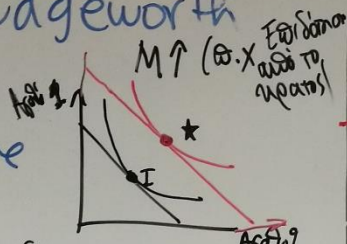 dgeworth
M↑ (π.χ Επίδομα
από το
κράτος)
Αγαθό 1
I
Αγαθό 2